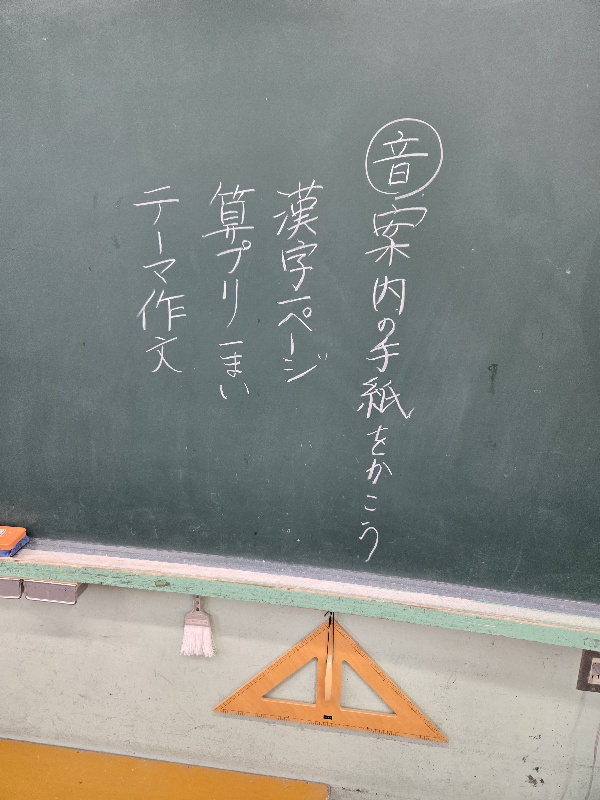 音 案内の手紙をかこう
漢字一ページ
算プリ一まい
テーマ作文